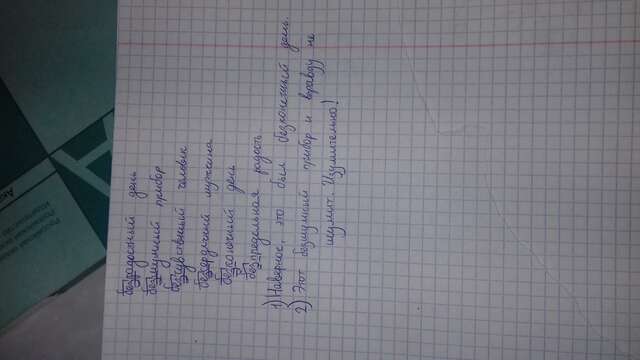 безрадостный день
безшумный прибор
безчувственный человек
безсердечный мужчина
безконечный день
безпредельная радость
1) Наверное, это был безконечный день.
2) Этот безшумный прибор и вправду не
шумит. Изумительно!